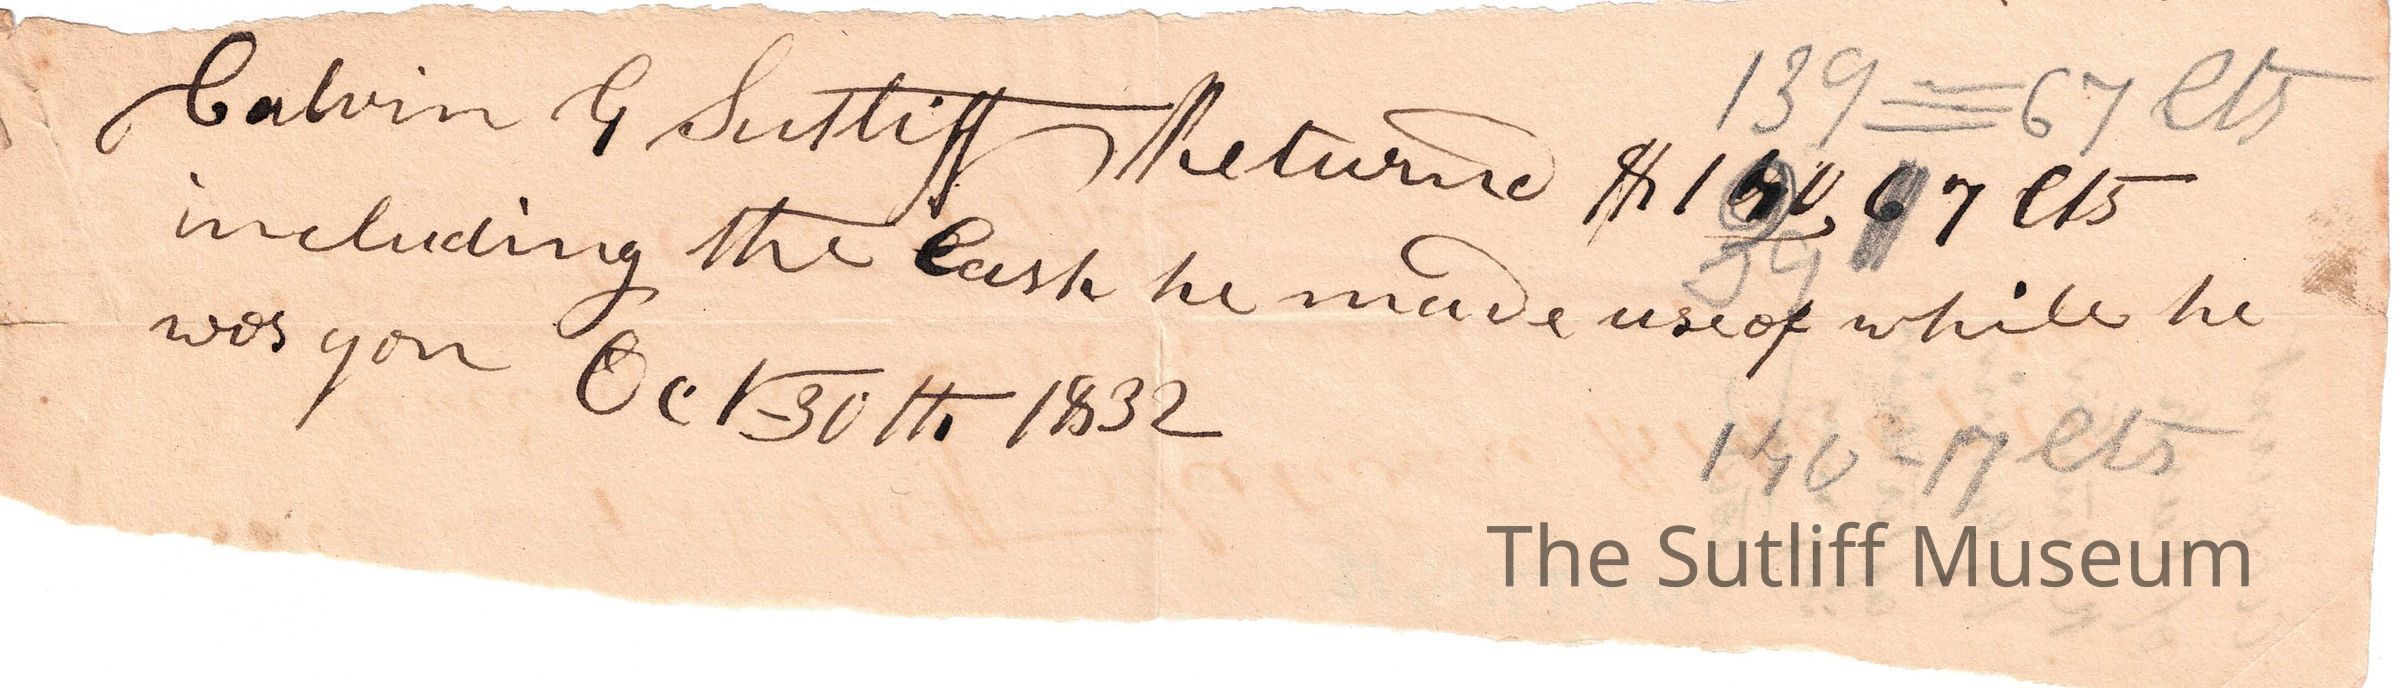 139 = 67 cts
Calvin G Sutliff Returnd $140 67 cts
39
including the Cash he made use of while he
was gon Oct 30th 1832
140 - 17 cts
The Sutliff Museum